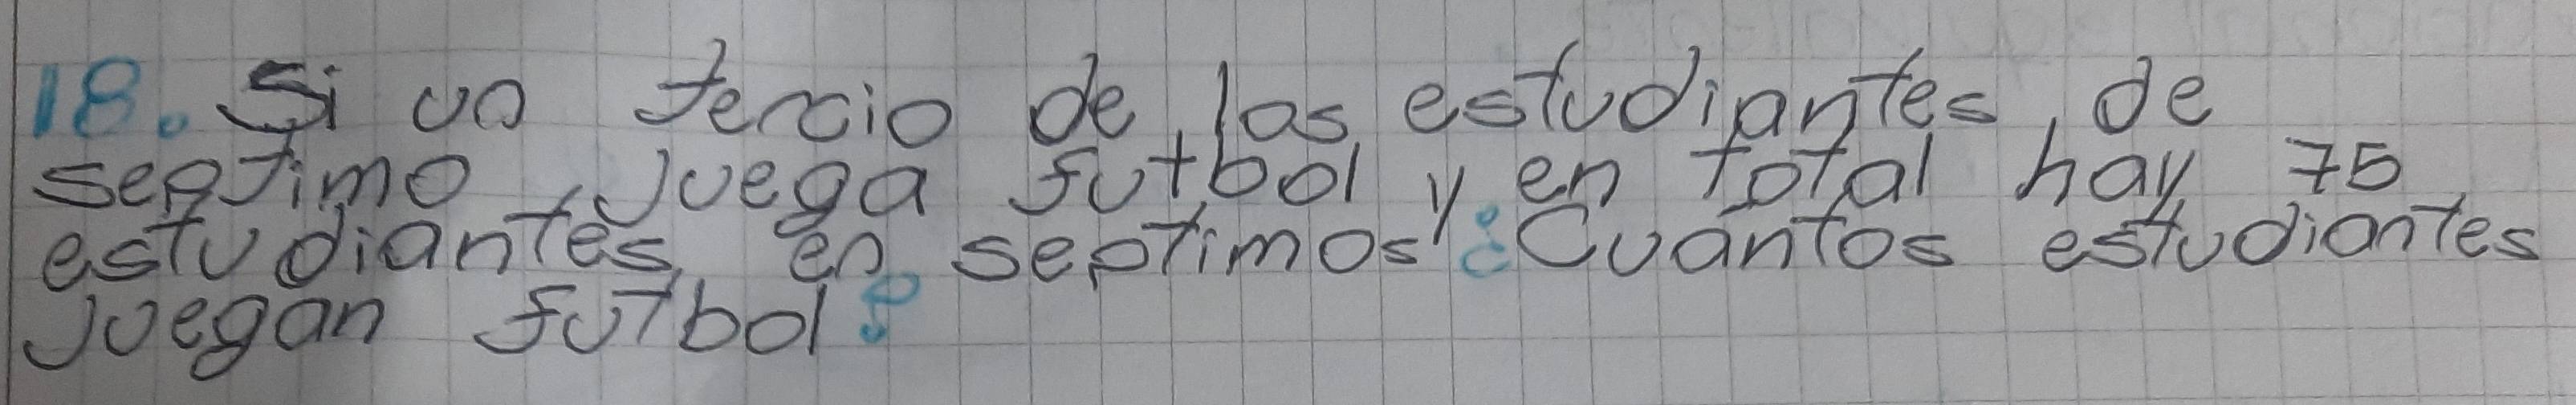 18. Si un tercio de los estudiantes de
septimo juega futbol y en total hay 75
estudiantes en septimos ¿Cuantos estudiantes
juegan futbol?